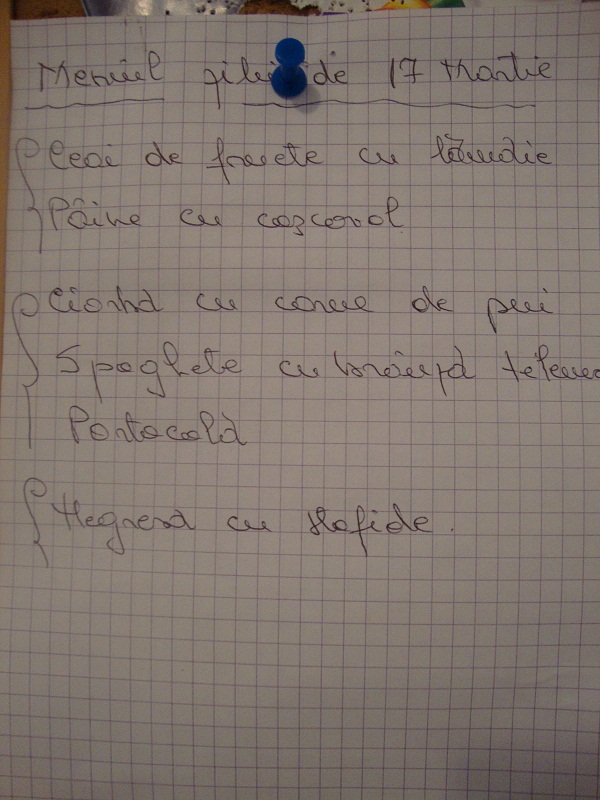 Meniul zilei de 17 Martie
Ceai de fructe cu lămâie
Pâine cu cașcaval
Ciorbă cu carne de pui
Spaghete cu brânză teleme
Portocală
Negresă cu stafide.